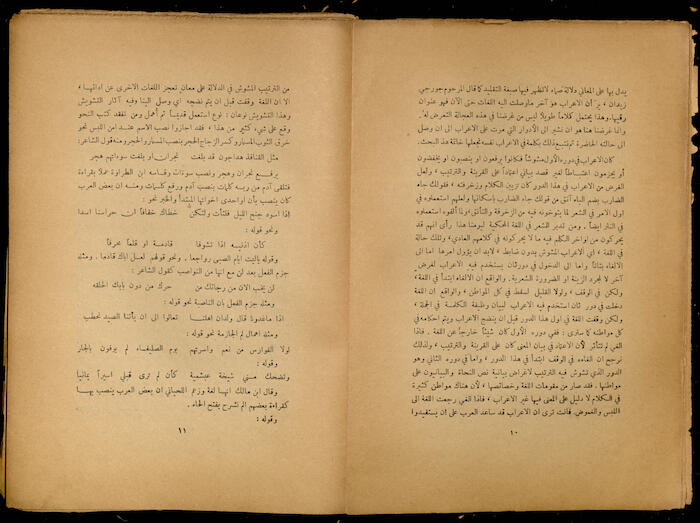 يدل بها على المعاني دلالة صماء لاتظهر فيها صبغة التقليد كما قال المرحوم جورجي
زيدان ، ير أن الاعراب هو آخر ماوصلت اليه اللغات حتى الآن فهو عنوان
رقيها. وهذا يحتمل كلاماً طويلا ليس من غرضنا في هذه العجالة التعرض له.
وانما غرضنا هنا هو ان نشير الى الادوار التي مرت على الاعراب الى ان وصل
الى حالته الحاضرة
كان الاعراب في دوره الأول مشوشاً فكانوا يرفعون او ينصبون او يخفضون
أو يجزمون اعتباطاً لغير قصد بياني اعتماداً على القرينة والترتيب ، ولعل
الغرض من الاعراب في هذا الدور كان تزيين الكلام وزخرفته ، فقولك جاء
الضارب بضم الباء آنق من قولك جاء الضارب باسكانها ولعلهم استعملوه في
اول الامر في الشعر لما يتوخونه فيه من الزخرفة والتأنق ولما ألفوه استعملوه
في النثر ايضاً . ومن تدبر الشعر في اللغة المحكية ليومنا هذا رأى انهم قد
يحركون من اواخر الكلم فيه ما لا يحركونه في كلامهم العادي، وتلك حالة
في اللغة ، اي الاعراب المشوش بدون ضابط ، لابد ان يؤول امرها اما الى
الالغاء بتاتاً واما الى الدخول في دور ثان يستخدم فيه الاعراب لغرض
آخر لا لمجرد الزينة او الضرورة الشعرية. والواقع ان الالغاء ابتدأ في اللغة،
ولكن في الوقف ، ولولا القليل لسقط في كل المواطن ، والواقع ان اللغة
دخلت في دور ثان استخدم فيه الاعراب لبيان وظيفة الكلمة في الجملة ،
ولكن وقفت اللغة في اول هذا الدور قبل ان ينضج الاعراب ويتم احكامه في
كل مواطنه كما سترى : ففي دوره الأول كان شيئاً خارجاً عن اللغة . فاذا
الغي لم تتأثر لأن الاعتماد في بيان المعنى كان على القرينة والترتيب ، ولذلك
نرجح ان الغاءه في الوقف ابتدأ في هذا الدور ، واما في دوره الثاني وهو
الدور الذي تشوش فيه الترتيب لاغراض بيانية نص النحاة والبيانيون على
مواطنها . فقد صار من مقومات اللغة وخصائصها ، لأن هناك مواطن كثيرة
في الكلام لا دليل على المعنى فيها غير الاعراب ، فاذا الغي رجعت اللغة الى
اللبس والغموض. فانت ترى ان الاعراب قد ساعد العرب على ان يستفيدوا
١٠
من الترتيب المشوش في الدلالة على معان تعجز اللغات الاخرى عن ادائها ،
الا ان اللغة وقفت قبل ان يتم نضجه اي وصل الينا وفيه آثار التشويش
وهذا التشويش نوعان : نوع استعمل قديماً ثم أهمل ومن تفقد كتب النحو
وقع على شيء كثير من هذا ، فقد اجازوا نصب الاسم عند امن اللبس نحو
خرق الثوب المسمار وكسر الزجاج الحجر ونصب المسمار والحجر ومنه قول الشاعر:
مثل القنافذ هداجون قد بلغت نجران او بلغت سوءاتهم هجر
برفع نجران وهجر ونصب سوءات وقاسه ابن الطراوة عملا بقراءة
فتلقى آدم من ربه كلمات بنصب آدم ورفع كلمات ومنه ان بعض العرب
كان ينصب بأن واحدى اخواتها المبتدأ والخبر نحو :
اذا اسود جنح الليل فلتأت ولتكن خطاك خفافاً ان حراسنا اسدا
ونحو قوله :
كأن اذنيه اذا تشوفا قادمة او قلماً محرفاً
وقوله ياليت ايام الصبى رواجعا . ونحو قولهم لعل اباك قادماً . ومثله
جزم الفعل بعد لن مع انها من النواصب كقول الشاعر :
لن يخب الآن من رجائك من حرك من دون بابك الحلقه
ومثله جزم الفعل بان الناصبة نحو قوله :
اذا ماغدونا قال ولدان اهلنا تعالوا الى ان يأتنا الصيد نحطب
ومثله اهمال لم الجازمة نحو قوله :
لولا الفوارس من نعم واسرتهم يوم الصليفاء لم يوفون بالجار
وقوله :
وتضحك مني شيخة عبشمية كأن لم ترى قبلي اسيراً يمانيا
وقال ابن مالك انها لغة وزعم اللحياني ان بعض العرب ينصب بها
كقراءة بعضهم الم نشرح بفتح الحاء .
وقوله :
١١